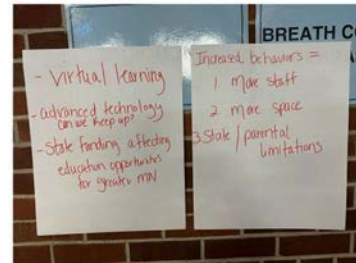 BREATH C
- Virtual learning
- advanced technology
can we keep up?
- State funding affecting
education opportunities
for greater MN
Increased behaviors =
1 more staff
2 more space
3 State / parental
limitations